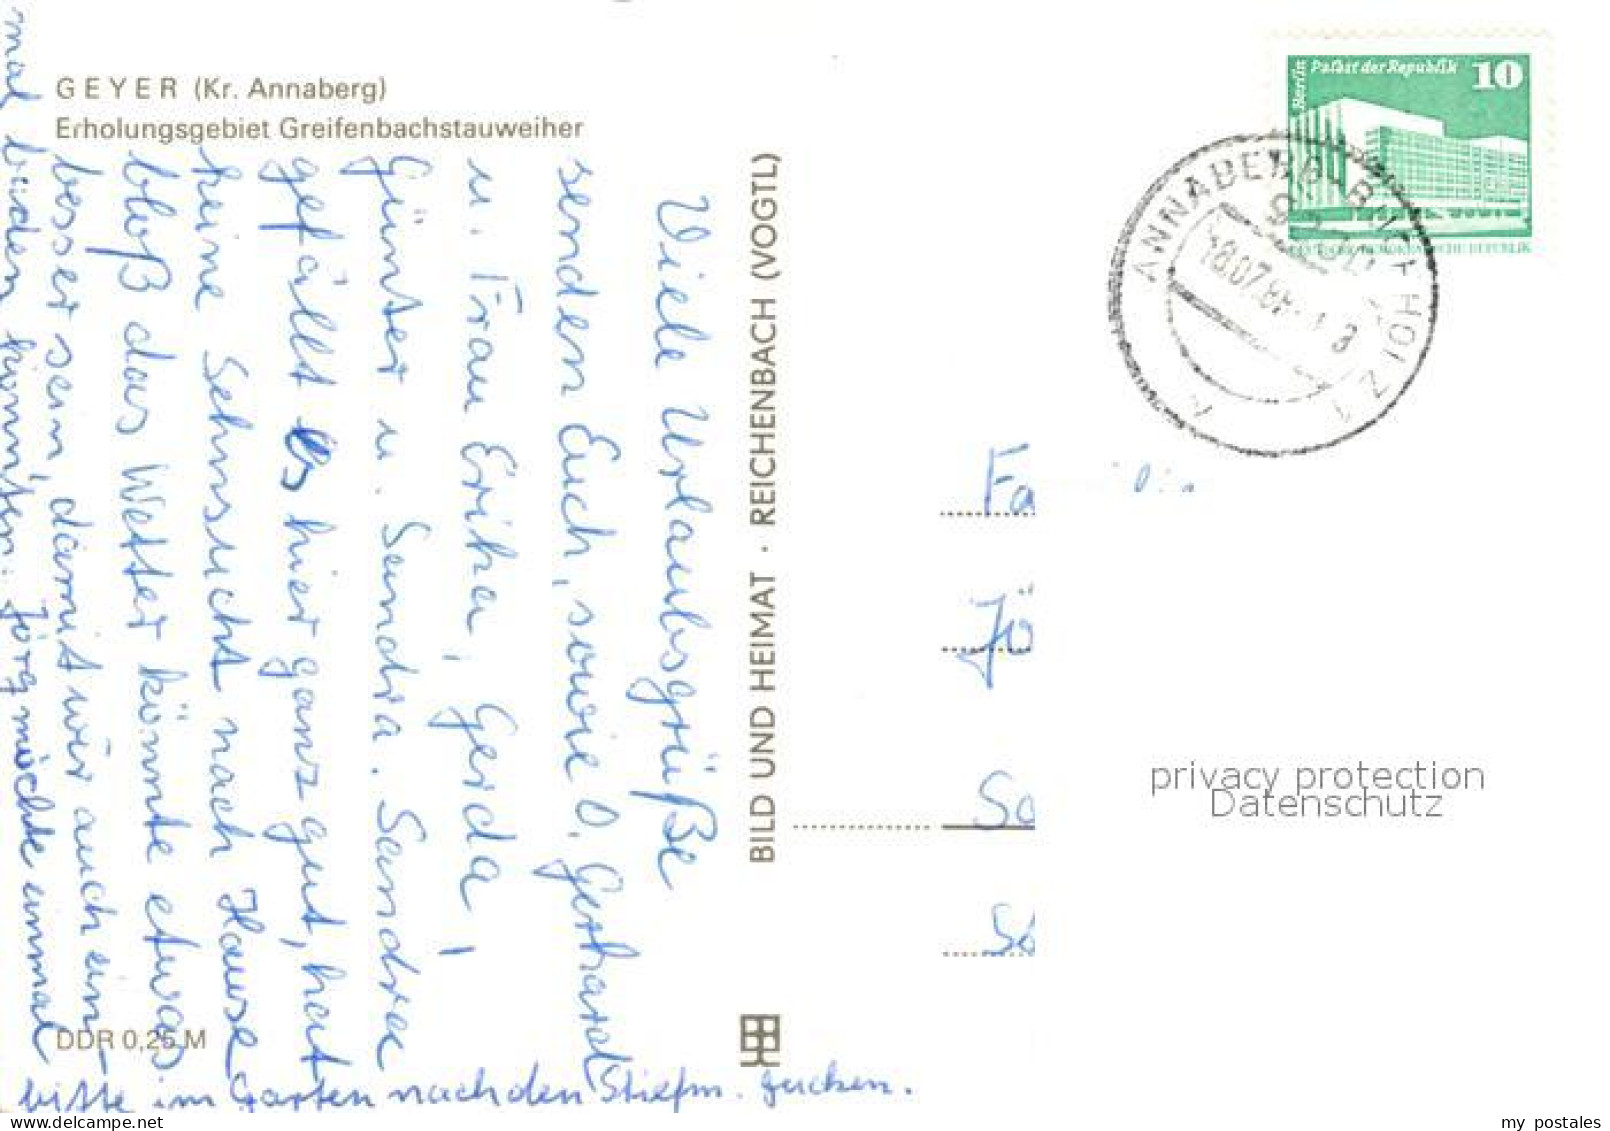 GEYER (Kr. Annaberg)
Erholungsgebiet Greifenbachstauweiher
Viele Urlaubsgrüße
senden Euch, sowie O. Gerhard
u. Frau Erika, Gerda,
Günter u. Sandra. Sandra
gefällt es hier ganz gut, hat
keine Sehnsucht nach Hause
bloß das Wetter könnte etwas
besser sein, damit wir auch ein-
mal baden könnten. Jörg möchte einmal
bitte im Garten nach den Stiefm. gucken.
DDR 0,25 M
BILD UND HEIMAT · REICHENBACH (VOGTL)
Berlin
Palast der Republik
10
ANNABERG-BUCHHOLZ 1
18.07.8
Fa
Jö
privacy protection
Datenschutz
my postales